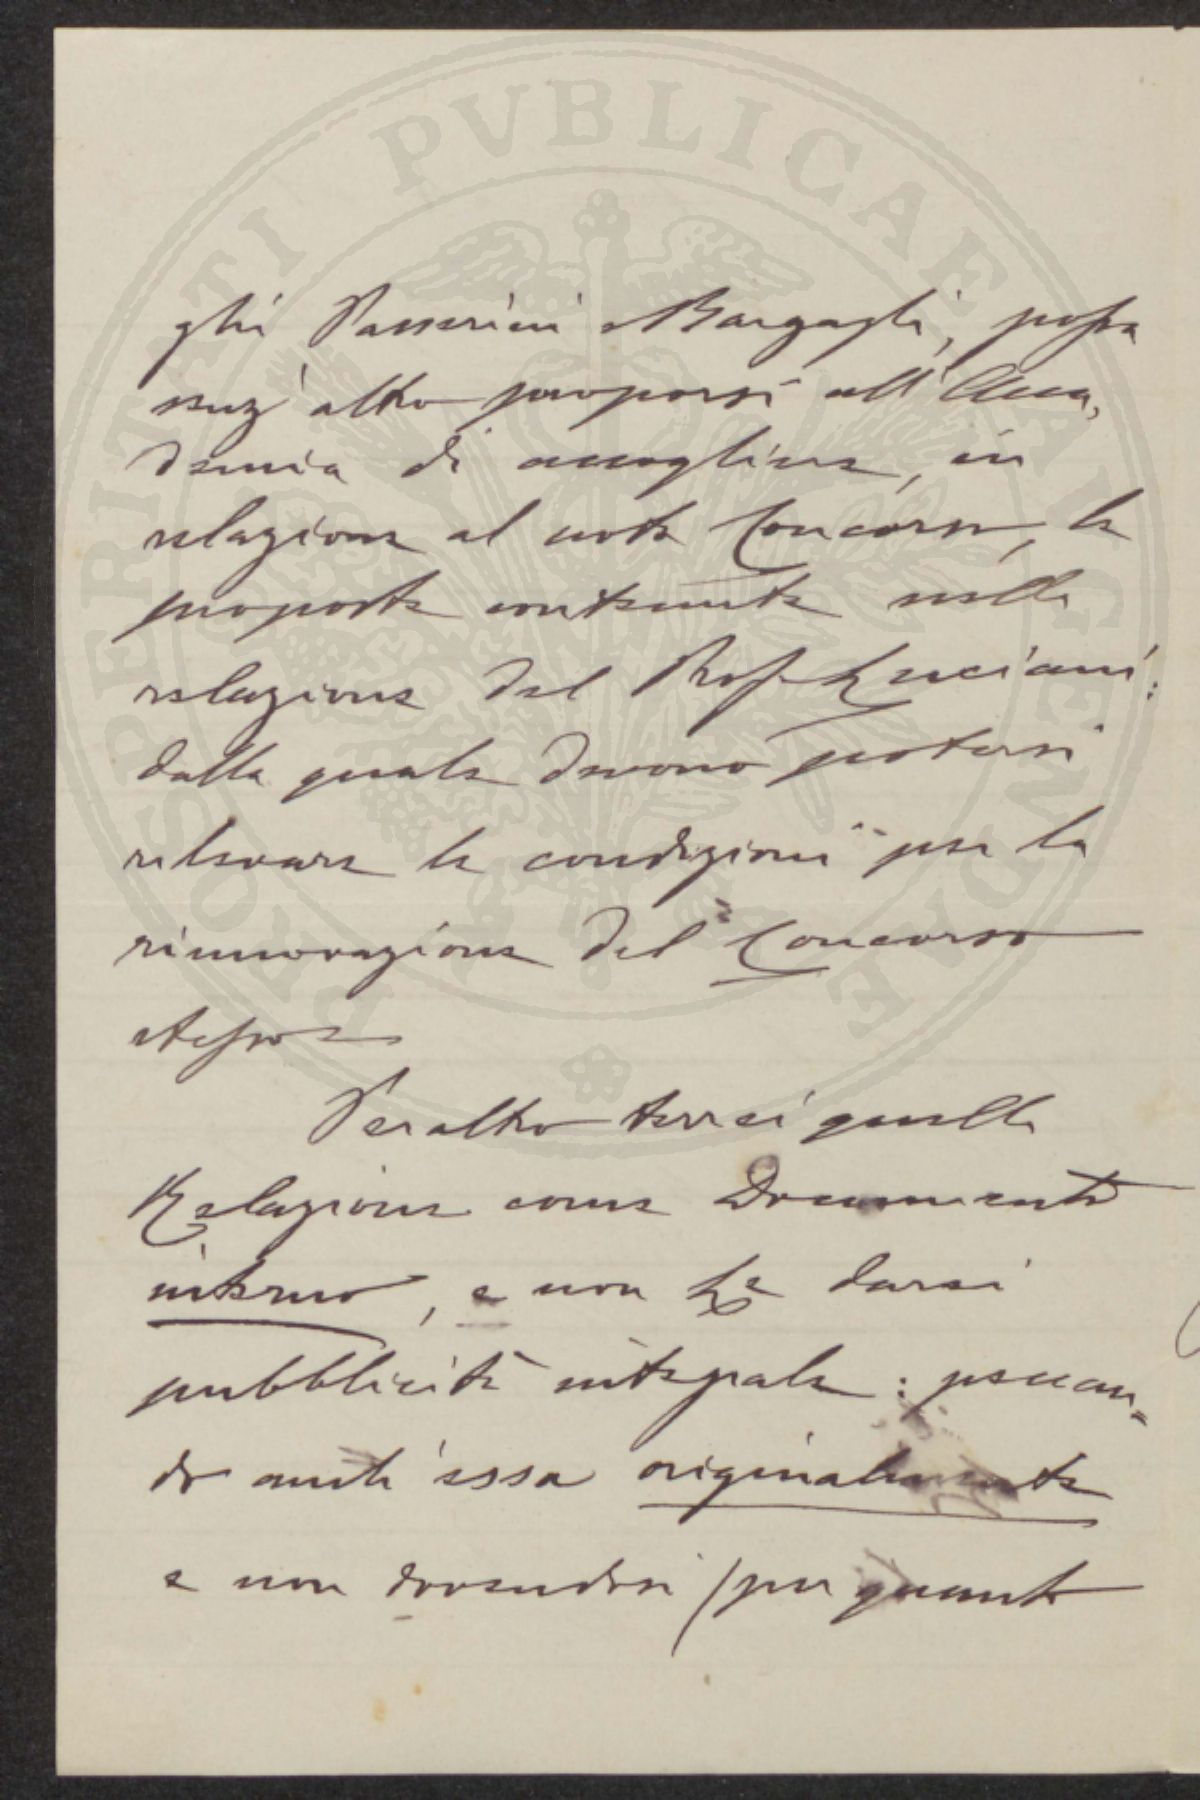 PROSPERITATI PVBLICAE AVGENDAE
ghi Passerini e Bargagli, possa
senz'altro proporsi all'Acca,
demia di accogliere, in
relazione al noto Concorso, le
proposte contenute nella
relazione del Prof. Luciani:
dalla quale devono potersi
rilevare le condizioni per la
rinnovazione del Concorso
stesso
Peraltro terrei quella
Relazione come Documento
interno, e non da darsi
pubblicità integrale: peccan=
do anch'essa originalmente
e non dovendosi (per quanto